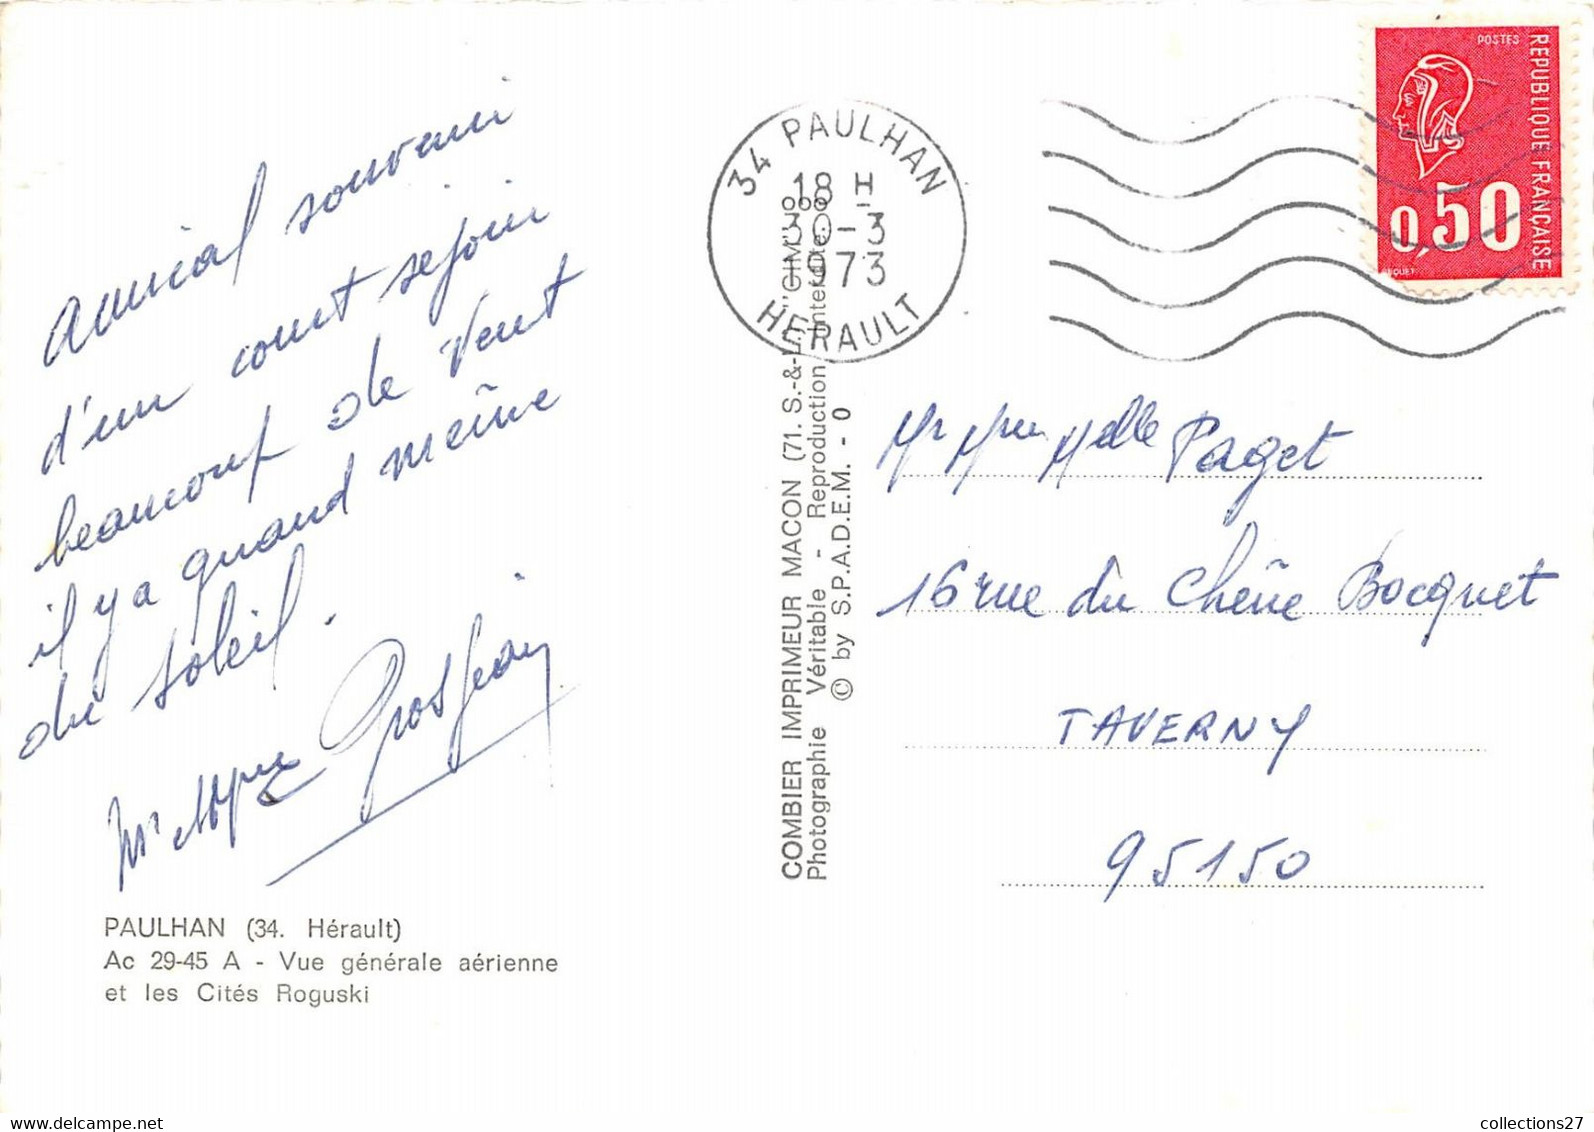 Amical souvenir
d'un court sejour
beaucoup de vent
il y a quand même
du soleil.
Mr Mme Grosjean
PAULHAN (34. Hérault)
Ac 29-45 A - Vue générale aérienne
et les Cités Roguski
COMBIER IMPRIMEUR MACON (71. S.-&-L. "CIM"
Photographie Véritable - Reproduction interdite
© by S.P.A.D.E.M. - 0
34 PAULHAN
18 H
30-3
1973
HERAULT
POSTES
REPUBLIQUE FRANÇAISE
0,50
Mr Mme Melle Paget
16 rue du Chêne Bocquet
TAVERNY
95150
collections27